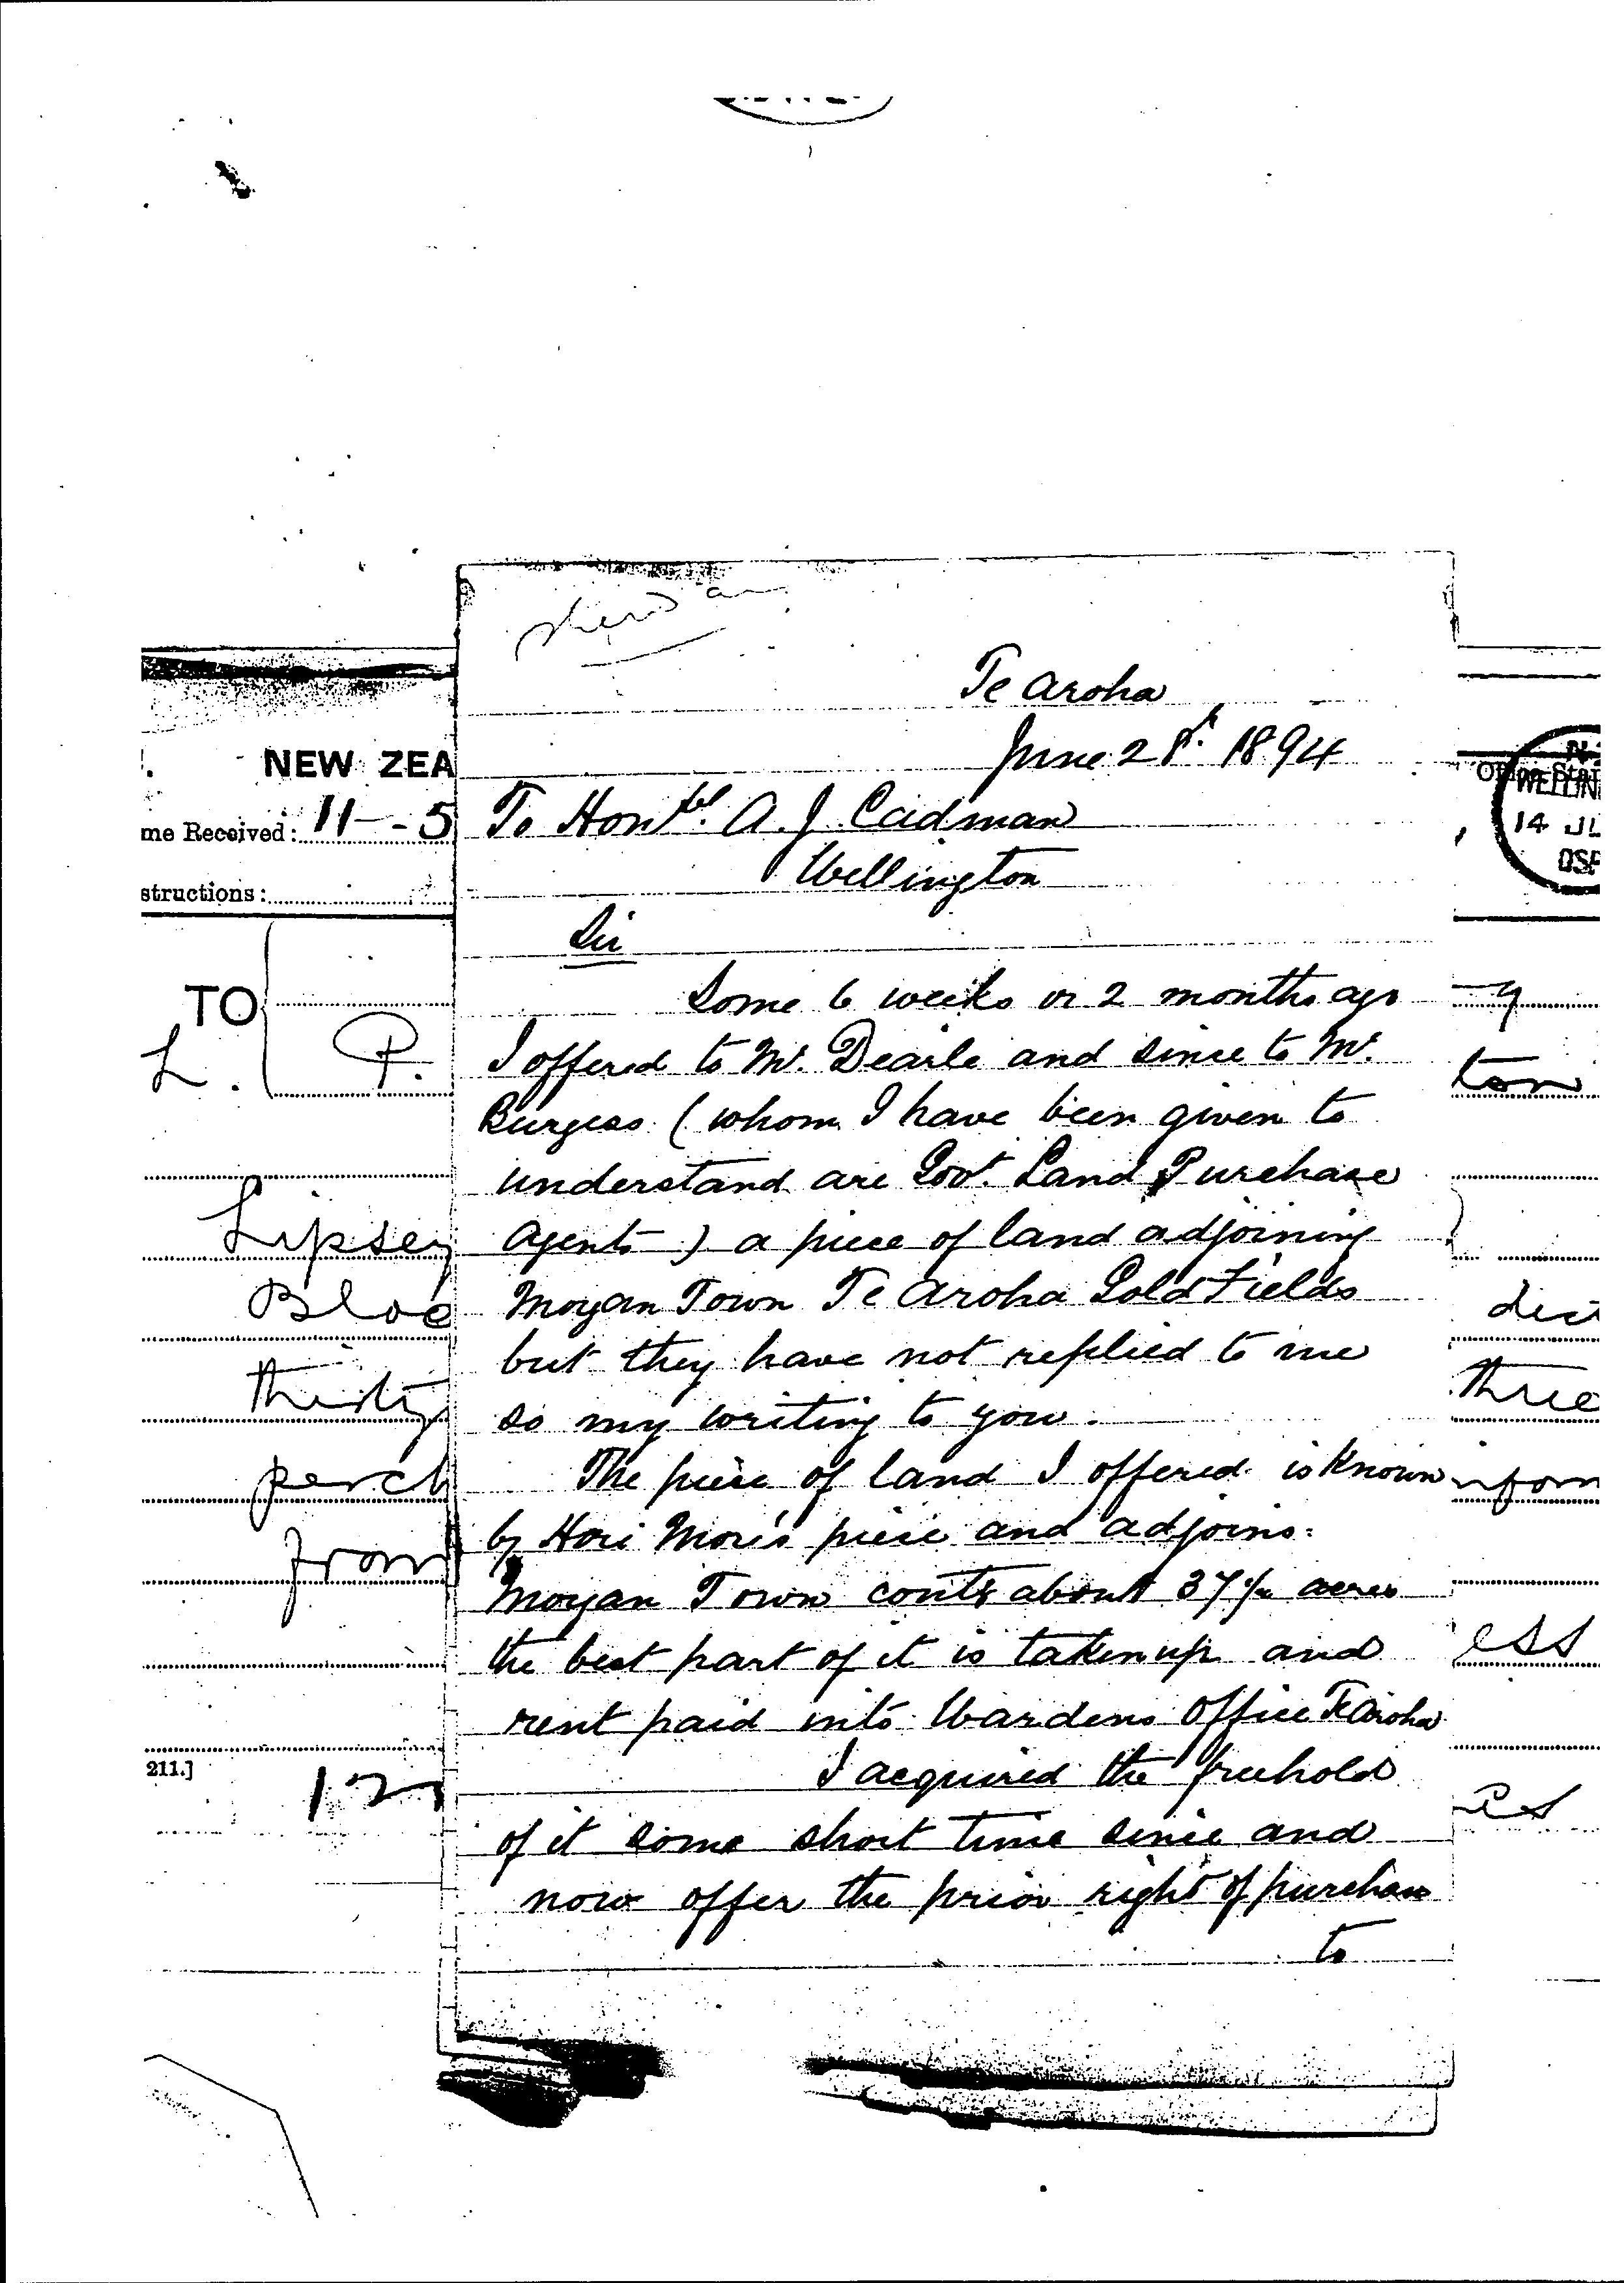 Te Aroha
June 2 1894
To Honble. A. J. Cadman
Wellington
Sir
Some 6 weeks or 2 months ago
I offered to Mr. Dearle and since to Mr.
Burgess (whom I have been given to
understand are Govt. Land Purchase
agents) a piece of land adjoining
Morgan Town Te Aroha Gold Fields
but they have not replied to me
so my writing to you.
The piece of land I offered is known
by Hori More's piece and adjoins
Morgan Town conts about 37 acres
the best part of it is taken up and
rent paid into Wardens Office Te Aroha
I acquired the freehold
of it some short time since and
now offer the prior right of purchase
to
NEW ZEA
me Received: 11 - 5
structions:
TO
L. P.
Lipsey
Bloc
thirty
perch
from
211.]
12
14 JU
ton
thre
ess
es